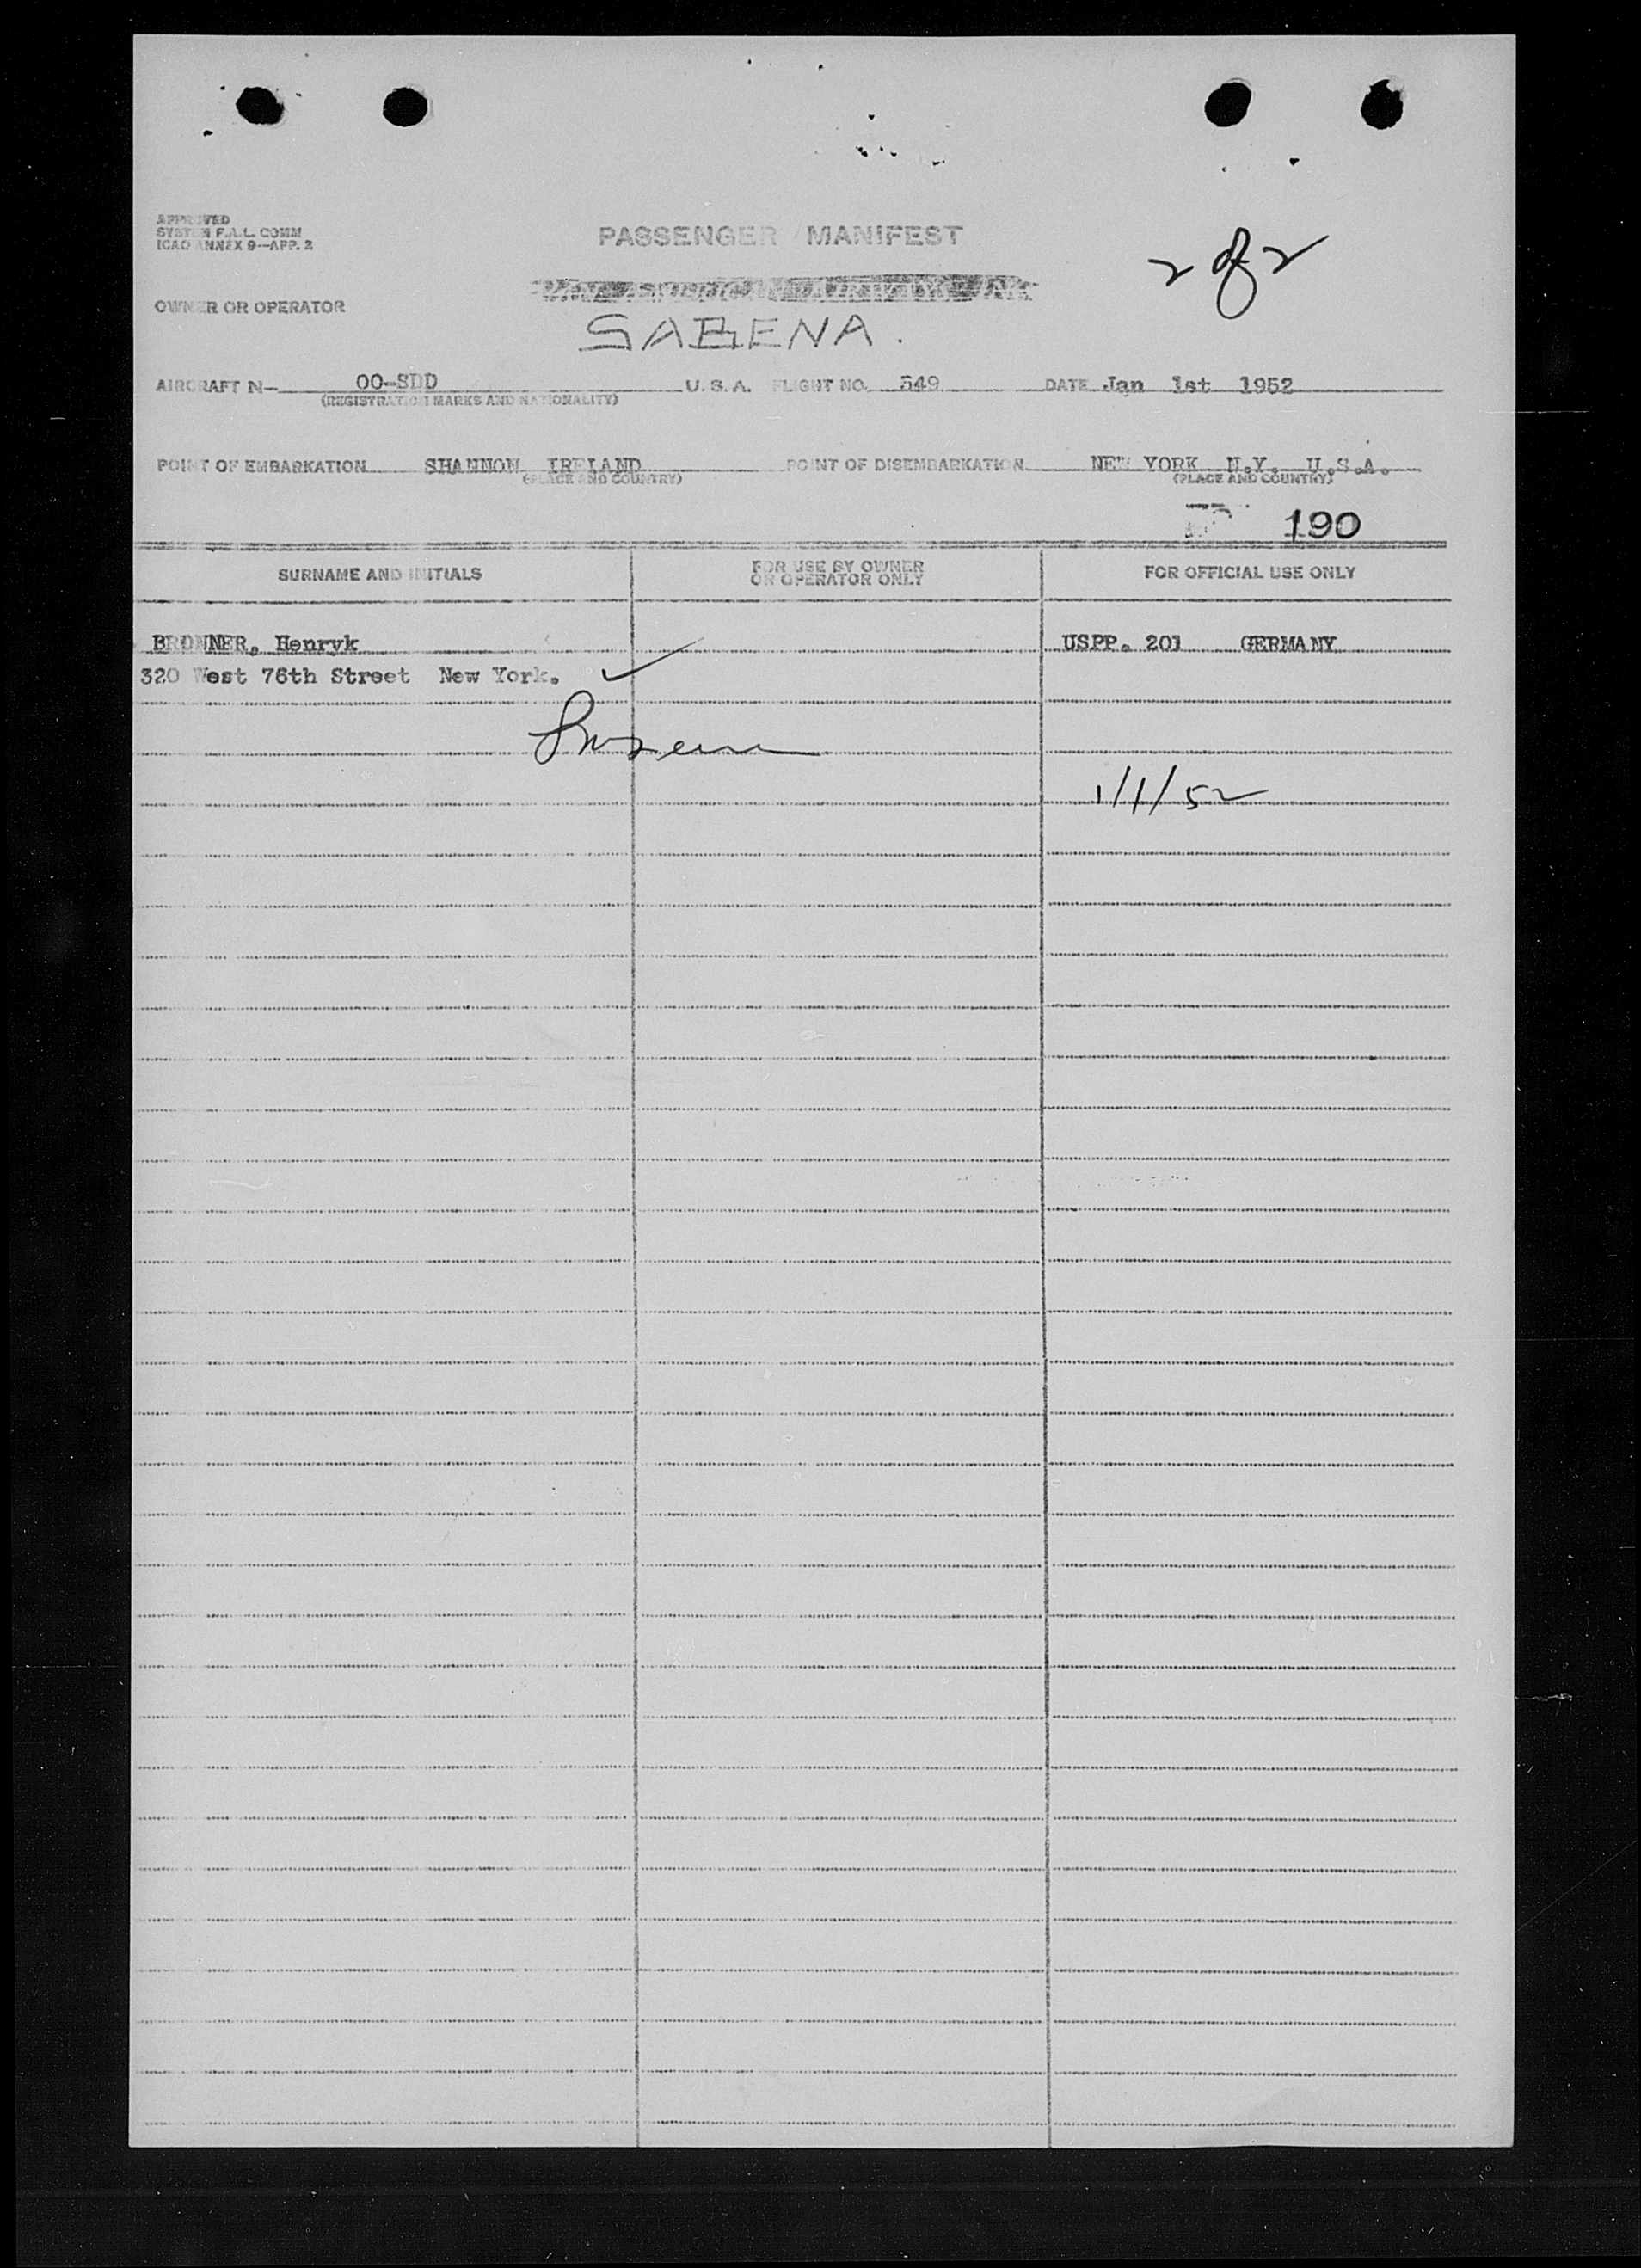 APPROVED
SYSTEM F.A.L. COMM
ICAO ANNEX 9—APP. 2
PASSENGER MANIFEST
2 of 2
OWNER OR OPERATOR
SABENA.
AIRCRAFT N— OO-SDD U. S. A. FLIGHT NO. 549 DATE Jan 1st 1952
(REGISTRATION MARKS AND NATIONALITY)
POINT OF EMBARKATION SHANNON IRELAND POINT OF DISEMBARKATION NEW YORK N.Y. U.S.A.
(PLACE AND COUNTRY) (PLACE AND COUNTRY)
190
SURNAME AND INITIALS FOR USE BY OWNER OR OPERATOR ONLY FOR OFFICIAL USE ONLY
BRONNER, Henryk USPP. 201 GERMANY
320 West 76th Street New York.
1/1/52